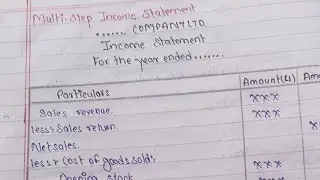 Multi-step Income Statement
....... COMPANY LTD.
Income Statement
For the year ended.......
Particulars Amount(₨) Amount
Sales revenue. xxx
less: Sales return. xxx
Net sales. x
less: Cost of goods sold:
Opening stock xxx